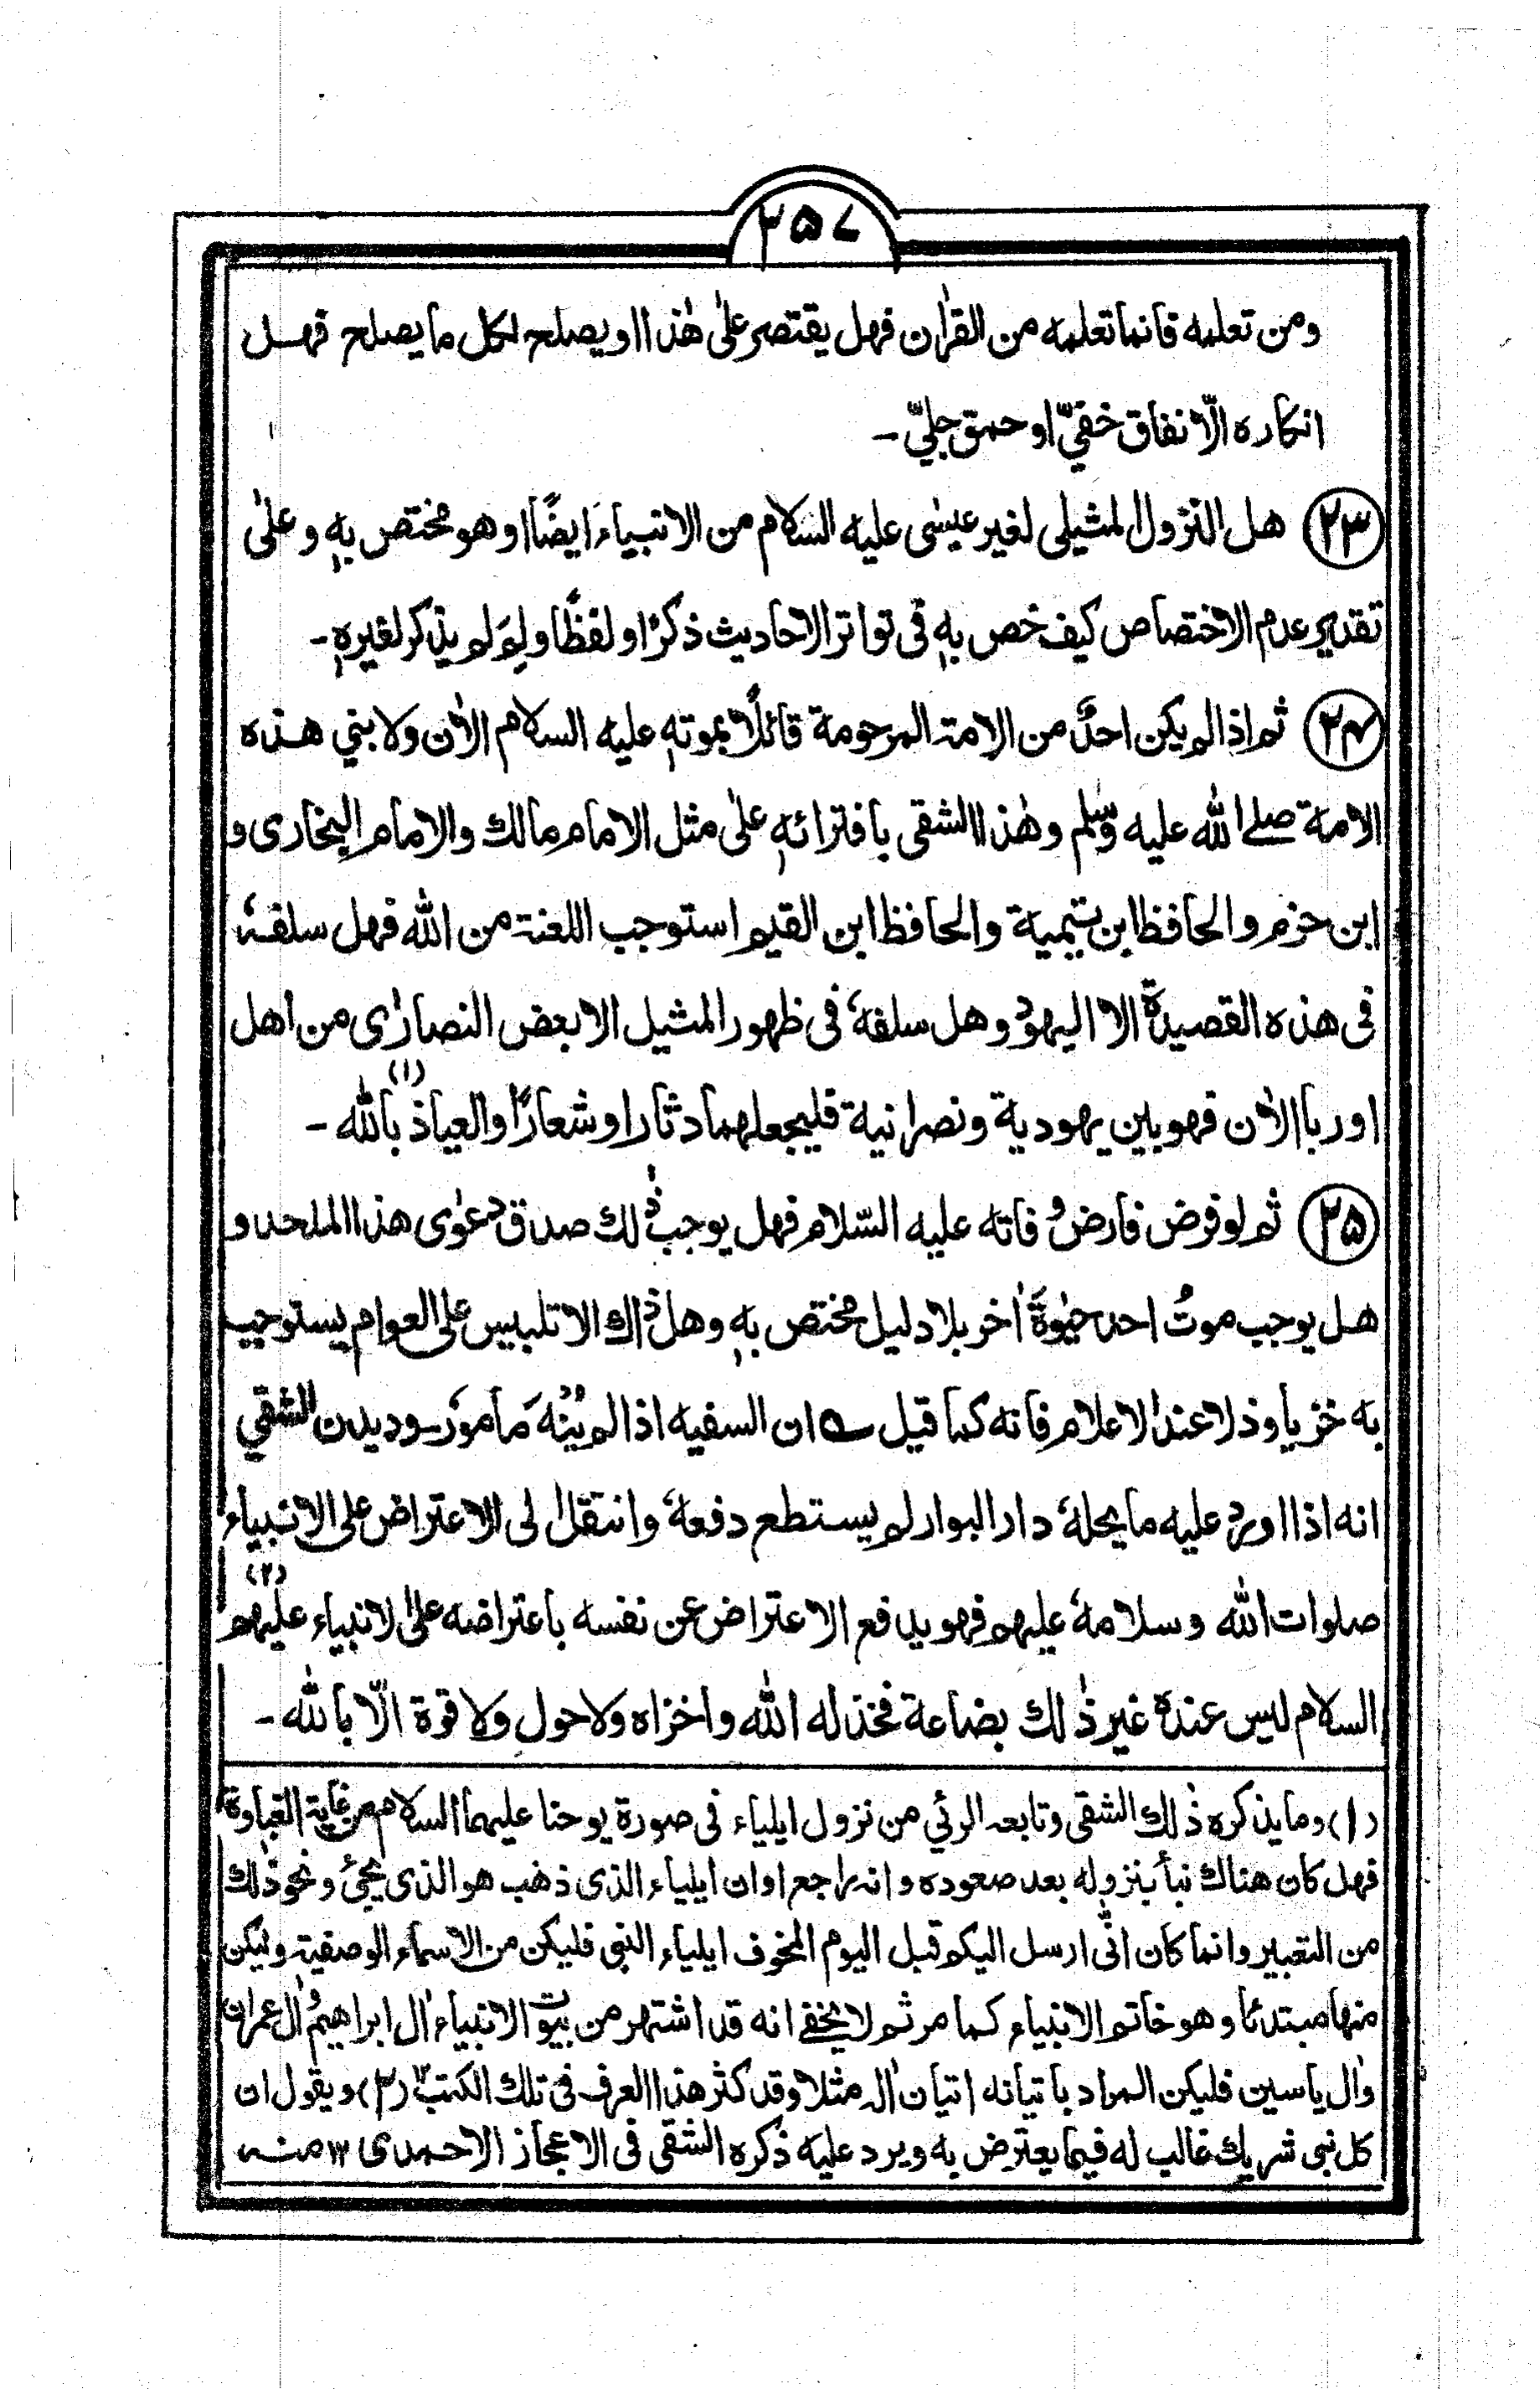 ٣٥٧
ومن تعلمه فانما تعلمه من القرٰان فهل يقتصر علىٰ هٰذا او يصلح لكل ما يصلح فهل
انكاره الّا نفاق خفيّ او حمق جليّ ـ
(٢٣) هل النزول المثيلى لغير عيسٰى عليه السلام من الانبياءَ ايضًا او هو مختص بهٖ و علىٰ
تقدير عدم الاختصاص كيف خص بهٖ فى تواتر الاحاديث ذكرًا و لفظًا و لِمَ لم يذكر لغيرهٖ ـ
(٢٤) ثم اذا لم يكن احدٌ من الامة المرحومة قائلًا بموتهٖ عليه السلام الاٰن ولا بني هذه
الامة صلے الله عليه وسلم و هٰذا الشقى بافترائهٖ علىٰ مثل الامام مالك والامام البخارى و
ابن حزم و الحافظ ابن تيمية والحافظ ابن القيم استوجب اللعنة من الله فهل سلفهٗ
فى هذه القصيدة الا اليهود و هل سلفهٗ فى ظهور المثيل الا بعض النصارٰى من اهل
اوربا الاٰن فهو بين يهودية و نصرانية فليجعلهما دثارا و شعارًا والعياذ بالله ـ (١)
(٢٥) ثم لو فرض فارض وفاته عليه السّلام فهل يوجب ذٰلك صدق دعوٰى هذا الملحد و
هل يوجب موتُ احد حيٰوةَ اٰخر بلا دليل مختص بهٖ و هل ذاك الا تلبيس على العوام يستوجب
به خزيا و ذلا عند الاعلام فانه كما قيل ؎ ان السفيه اذا لم يُنهَ مأمور ـ و ديدن الشقي
انه اذا اورد عليه ما يحلهٗ دار البوار لم يستطع دفعهٗ و انتقل الى الاعتراض على الانبياء
صلوات الله و سلامهٗ عليهم فهو يدفع الاعتراض عن نفسه باعتراضه على الانبياء عليهم (٢)
السلام ليس عندهٗ غير ذٰلك بضاعة فخذله الله واخزاه ولا حولِ ولا قوة الّا بالله ـ
(١) و ما يذكره ذٰلك الشقى و تابعه الرئي من نزول ايلياء فى صورة يوحنا عليهما السلام من غاية الغباوة
فهل كان هناك نبأ بنزوله بعد صعوده و انه راجع او ان ايلياء الذى ذهب هو الذى يجئ و نحو ذٰلك
من التعبير و انما كان انّى ارسل اليكم قبل اليوم المخوف ايلياء النبى فليكن من الاسماء الوصفية و ليكن
منها مبتدئا و هو خاتم الانبياء كما مر ثم لا يخفے انه قد اشتهر من بيوت الانبياء اٰل ابراهيم و اٰل عمران
و اٰل ياسين فليكن المراد باتيانه اتيان اٰله مثلا و قد كثر هذا العرف فى تلك الكتب ١٢ (٢) و يقول ان
كل نبى شريك غالب له فيما يعترض به و يرد عليه ذكره الشقى فى الاعجاز الاحمدى ١٢ منه